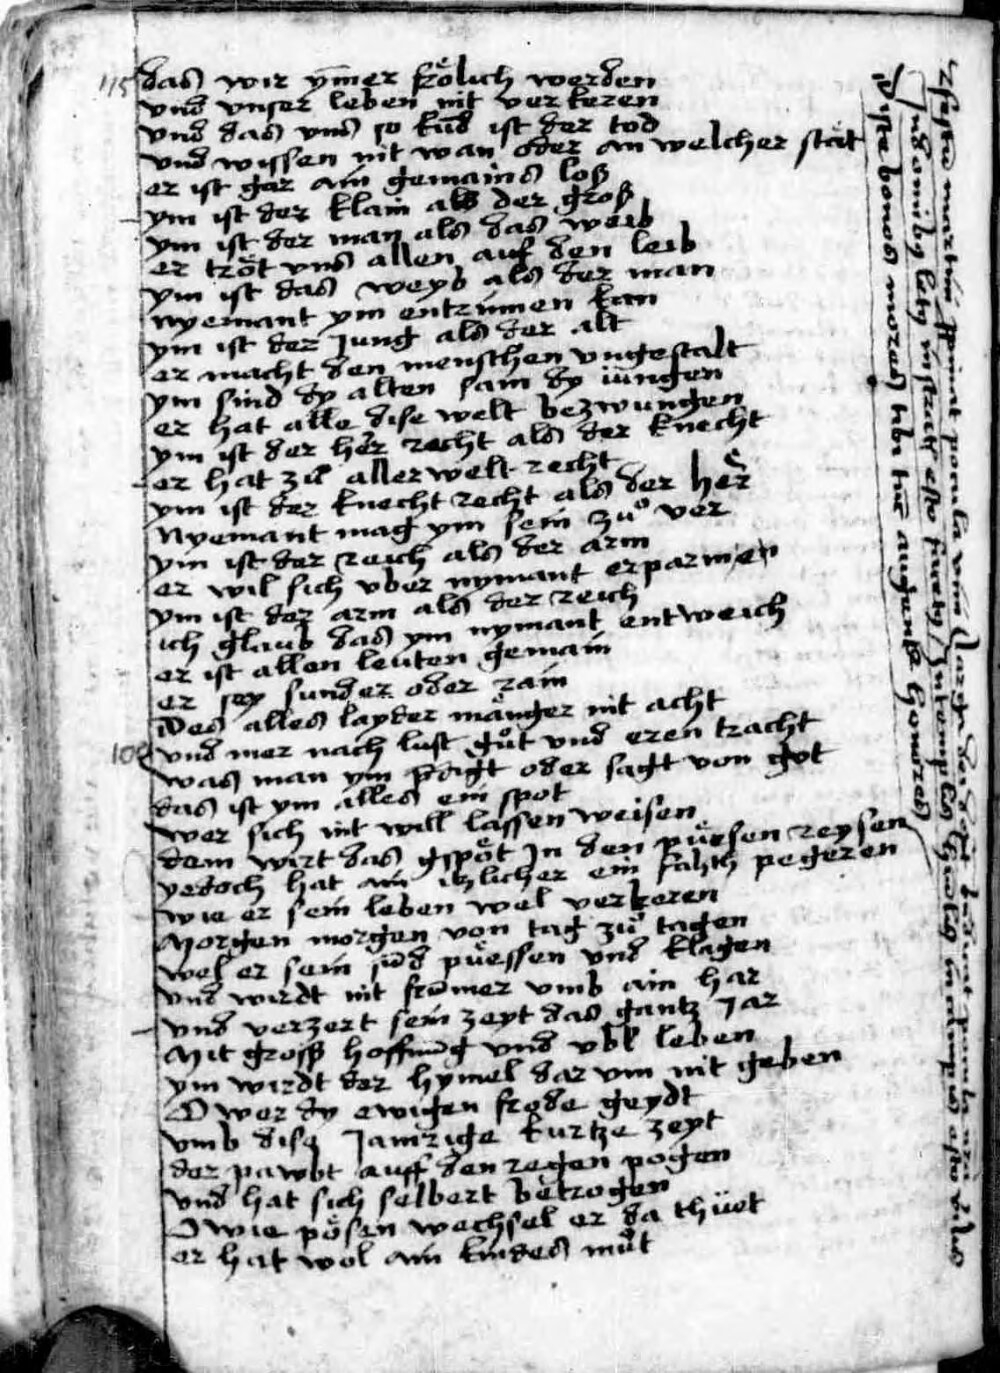 115
das wir ym̄er frölich werden
vnd vnser leben nit verkeren
vnd das vns so kūd ist der tod
vnd wissen nit wan oder an welcher stät
er ist gar ain gemains loß
ym ist der klain als der groß
ym ist der man als das weib
er tröt vns allen auf den leib
ym ist das weyb als der man
nyemant ym entrinnen kan
ym ist der Jung als der alt
er macht den menschen vngestalt
ym sind dy alten sam dy iungen
er hat alle dise welt bezwungen
ym ist der her recht als der knecht
er hat zů aller welt recht
ym ist der knecht recht als der her
Nyemant mag ym sein zů ver
ym ist der reich als der arm
er wil sich vber nymant erparmen
ym ist der arm als der reich
ich glaub das ym nymant entweich
er ist allen leuten gemain
er sey sunder oder rain
Des alles layder mänger nit acht
vnd mer nach lust gůt vnd eren tracht
was man ym pdigt oder sagt von got
das ist ym alles ein spot
wer sich nit will lassen weisen
dem wirt das gspöt In den reysen
yedoch hat ain itzlicher ein pegeren
wie er sein leben wel verkeren
Morgen morgen von tag zů tagen
wel er sein sūd püessen vnd klagen
vnd wirdt nit frūmer vmb ain har
vnd verzert sein zeyt das gantz Jar
Mit gross hoffnūg vnd vbl leben
ym wirdt der hymel dar vm nit geben
O wer dy ewigen frode geydt
vmb dise Jamrige kurtze zeyt
der pawbt auff den regen pogen
vnd hat sich selbert betrogen
O wie pösen wechsel er da thüet
er hat wol ain kindes můt
festa martini pocula vini
In templis in campis esto
bonos mores honores